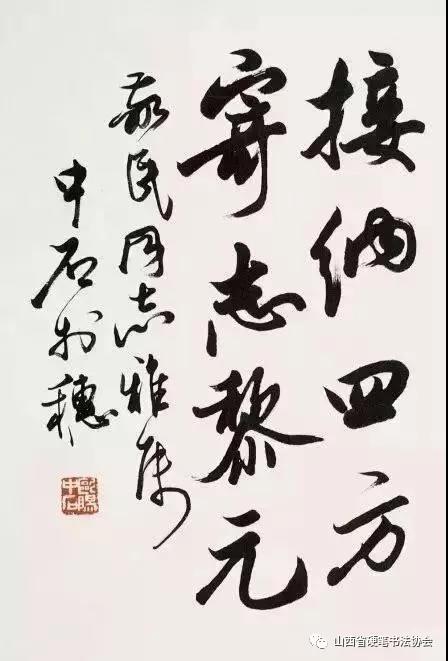 接纳四方
寄志黎元
敬民同志雅属
中石于穗
欧阳中石
山西省硬笔书法协会